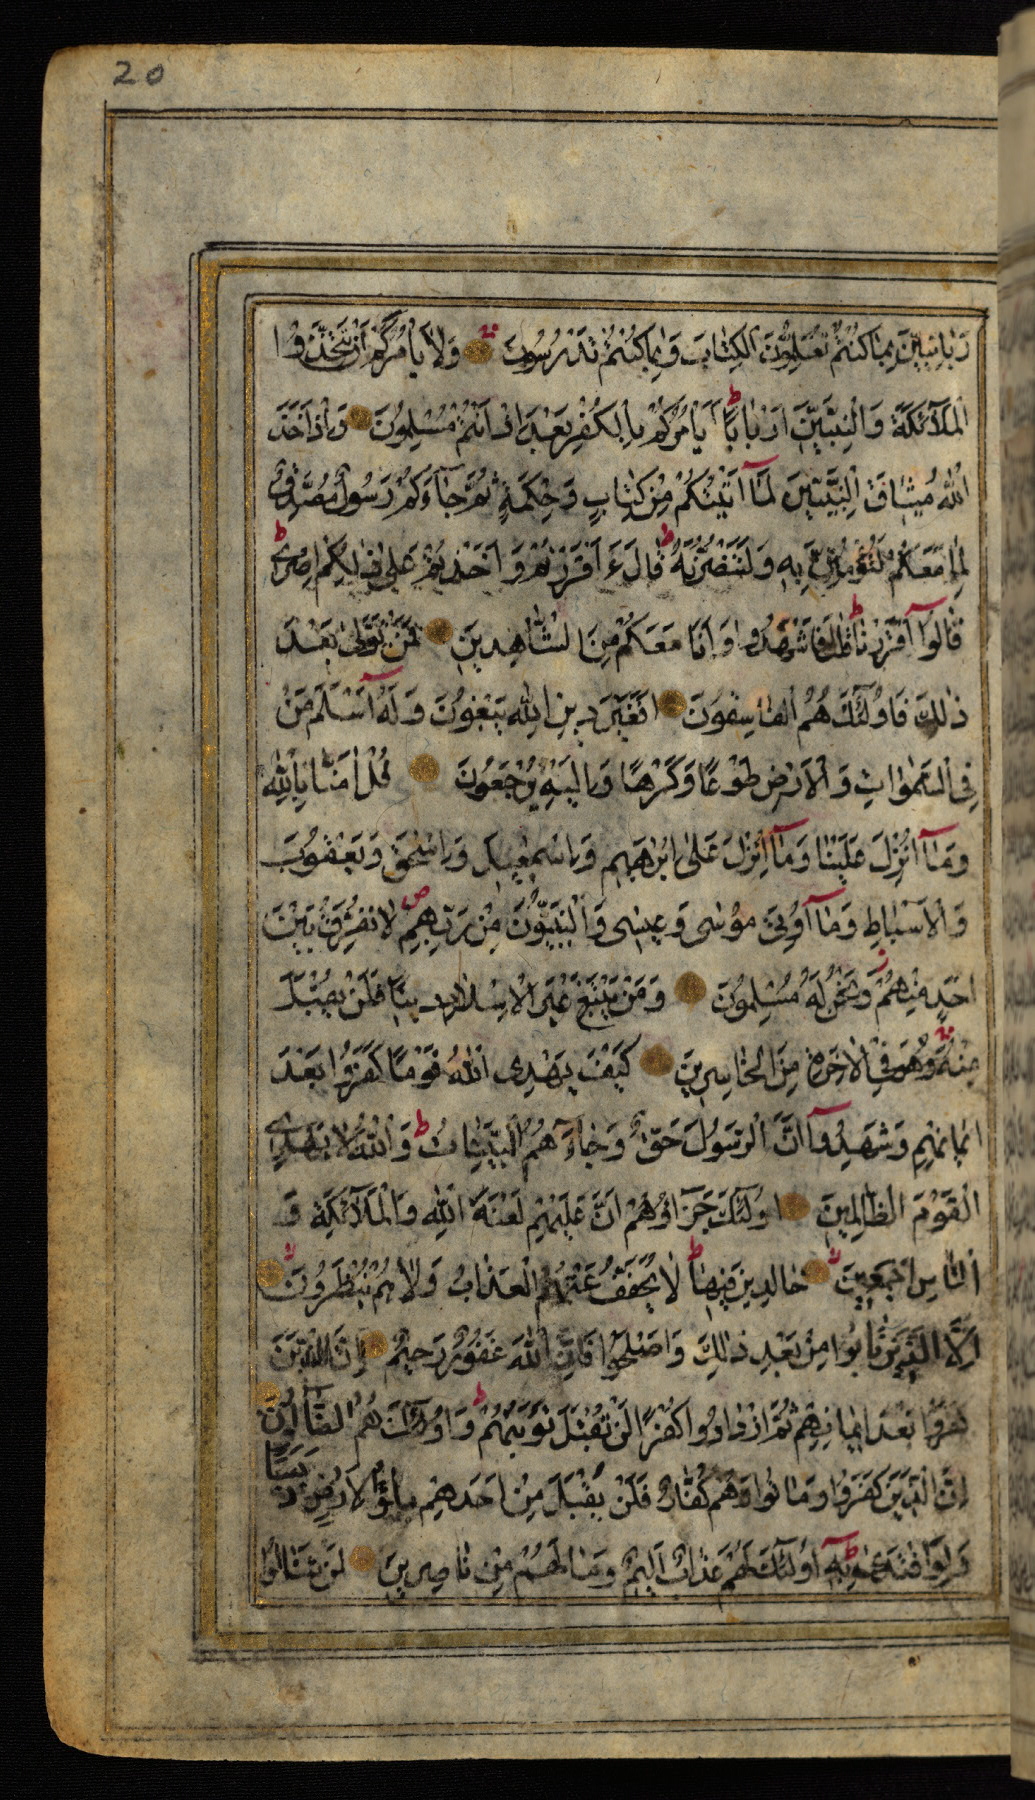 20
رَبّانِيّينَ بِمٰا كُنْتُمْ تُعَلِّمُونَ الْكِتٰابَ وَبِمٰا كُنْتُمْ تَدْرُسُونَ وَلٰا يَأْمُرَكُمْ اَنْ تَتَّخِذُوا
الْمَلٰٓائِكَةَ وَالنَّبِيّينَ اَرْبٰابًا اَيَأْمُرُكُمْ بِالْكُفْرِ بَعْدَ اِذْ اَنْتُمْ مُسْلِمُونَ وَاِذْ اَخَذَ
اللّٰهُ مِيثٰاقَ النَّبِيّينَ لَمٰٓا اٰتَيْتُكُمْ مِنْ كِتٰابٍ وَحِكْمَةٍ ثُمَّ جٰٓاءَكُمْ رَسُولٌ مُصَدِّقٌ
لِمٰا مَعَكُمْ لَتُؤْمِنُنَّ بِهِ وَلَتَنْصُرُنَّهُ قٰالَ ءَاَقْرَرْتُمْ وَاَخَذْتُمْ عَلىٰ ذٰلِكُمْ اِصْرِي
قٰالُوٓا اَقْرَرْنٰا قٰالَ فَاشْهَدُوا وَاَنَا مَعَكُمْ مِنَ الشّٰاهِدِينَ فَمَنْ تَوَلّىٰ بَعْدَ
ذٰلِكَ فَاُولٰٓئِكَ هُمُ الْفٰاسِقُونَ اَفَغَيْرَ دِينِ اللّٰهِ يَبْغُونَ وَلَهُٓ اَسْلَمَ مَنْ
فِي السَّمٰوٰاتِ وَالْاَرْضِ طَوْعًا وَكَرْهًا وَاِلَيْهِ يُرْجَعُونَ قُلْ اٰمَنّٰا بِاللّٰهِ
وَمٰٓا اُنْزِلَ عَلَيْنٰا وَمٰٓا اُنْزِلَ عَلىٰ اِبْرٰهِيمَ وَاِسْمٰعِيلَ وَاِسْحٰقَ وَيَعْقُوبَ
وَالْاَسْبٰاطِ وَمٰٓا اُوتِيَ مُوسٰى وَعِيسٰى وَالنَّبِيُّونَ مِنْ رَبِّهِمْ لٰا نُفَرِّقُ بَيْنَ
اَحَدٍ مِنْهُمْ وَنَحْنُ لَهُ مُسْلِمُونَ وَمَنْ يَبْتَغِ غَيْرَ الْاِسْلٰامِ دِينًا فَلَنْ يُقْبَلَ
مِنْهُ وَهُوَ فِي الْاٰخِرَةِ مِنَ الْخٰاسِرِينَ كَيْفَ يَهْدِى اللّٰهُ قَوْمًا كَفَرُوا بَعْدَ
اِيمٰانِهِمْ وَشَهِدُوٓا اَنَّ الرَّسُولَ حَقٌّ وَجٰٓاءَهُمُ الْبَيِّنٰاتُ وَاللّٰهُ لٰا يَهْدِي
الْقَوْمَ الظّٰالِمِينَ اُولٰٓئِكَ جَزٰٓاؤُهُمْ اَنَّ عَلَيْهِمْ لَعْنَةَ اللّٰهِ وَالْمَلٰٓائِكَةِ وَ
النّٰاسِ اَجْمَعِينَ خٰالِدِينَ فِيهٰا لٰا يُخَفَّفُ عَنْهُمُ الْعَذٰابُ وَلٰا هُمْ يُنْظَرُونَ
اِلَّا الَّذِينَ تٰابُوا مِنْ بَعْدِ ذٰلِكَ وَاَصْلَحُوا فَاِنَّ اللّٰهَ غَفُورٌ رَحِيمٌ اِنَّ الَّذِينَ
كَفَرُوا بَعْدَ اِيمٰانِهِمْ ثُمَّ ازْدٰادُوا كُفْرًا لَنْ تُقْبَلَ تَوْبَتُهُمْ وَاُولٰٓئِكَ هُمُ الضّٰٓالُّونَ
اِنَّ الَّذِينَ كَفَرُوا وَمٰاتُوا وَهُمْ كُفّٰارٌ فَلَنْ يُقْبَلَ مِنْ اَحَدِهِمْ مِلْؤُ الْاَرْضِ ذَهَبًا
وَلَوِ افْتَدىٰ بِهِٓ اُولٰٓئِكَ لَهُمْ عَذٰابٌ اَلِيمٌ وَمٰا لَهُمْ مِنْ نٰاصِرِينَ لَنْ تَنٰالُوا